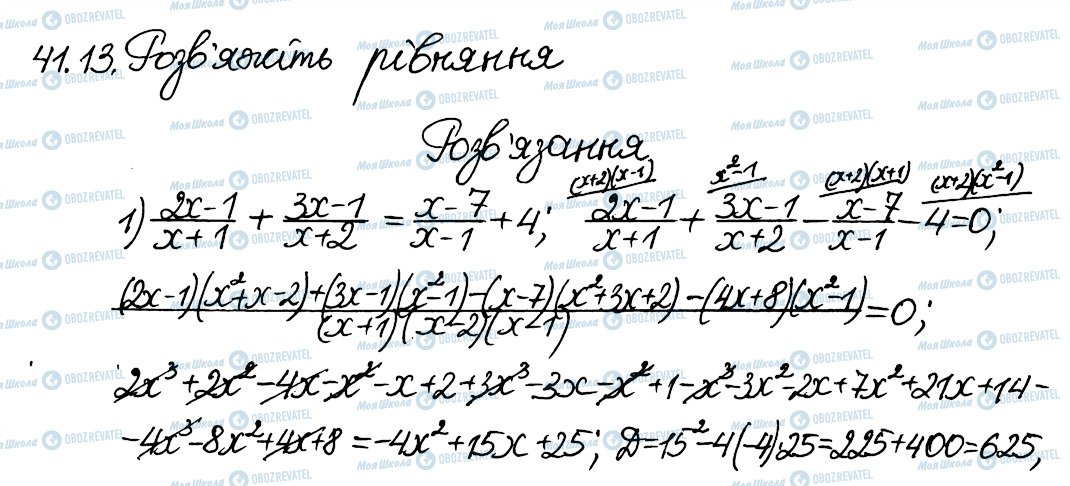 41.13. Розв'яжіть рівняння
Розв'язання
1) (2x-1)/(x+1) + (3x-1)/(x+2) = (x-7)/(x-1) + 4; (x+2)(x-1)/ (2x-1)/(x+1) + x²-1/ (3x-1)/(x+2) - (x+2)(x+1)/ (x-7)/(x-1) - (x+2)(x²-1)/ 4 = 0;
((2x-1)(x²+x-2)+(3x-1)(x²-1)-(x-7)(x²+3x+2)-(4x+8)(x²-1))/((x+1)(x-2)(x-1)) = 0;
2x³+2x²-4x-x²-x+2+3x³-3x-x²+1-x³-3x²-2x+7x²+21x+14-
-4x³-8x²+4x+8 = -4x²+15x+25; Д=15²-4(-4)·25=225+400=625,